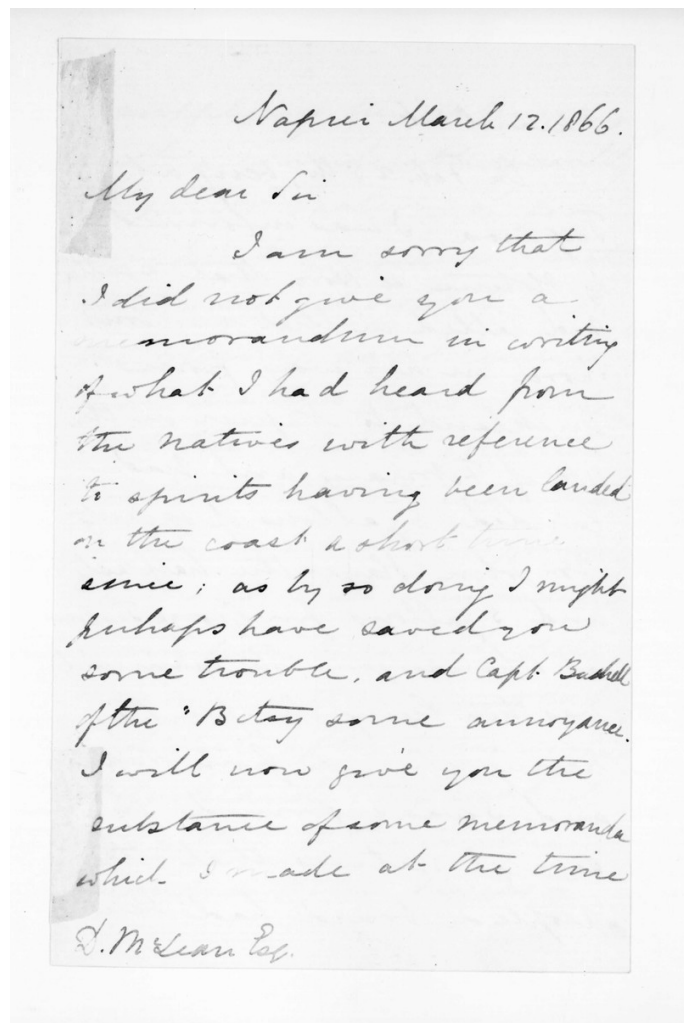 Napier March 12. 1866.
My dear Sir
I am sorry that
I did not give you a
memorandum in writing
of what I had heard from
the natives with reference
to spirits having been landed
on the coast a short time
since; as by so doing I might
perhaps have saved you
some trouble, and Capt.
of the "Betsy some annoyance.
I will now give you the
substance of some memoranda
which I made at the time
D. McLean Esq.